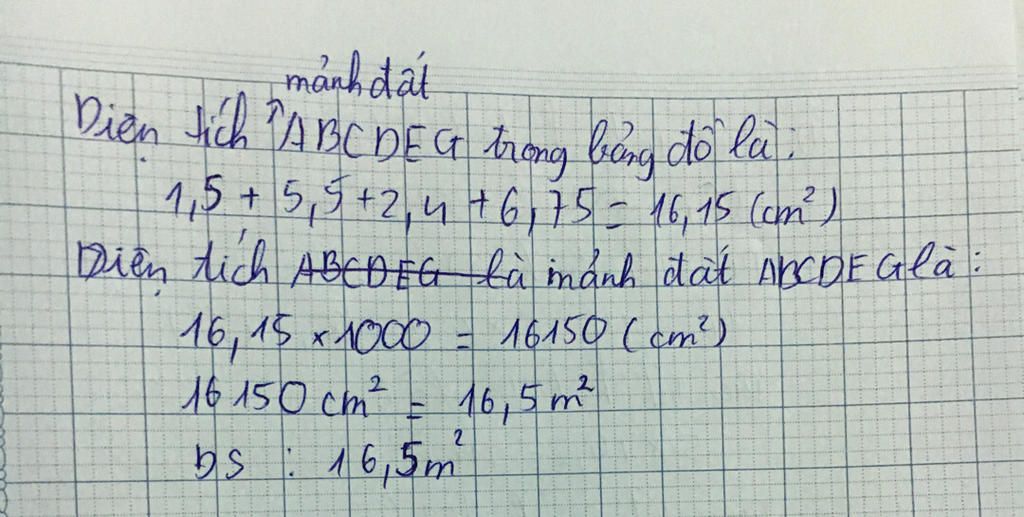 mảnh đất
Diện tích ABCDEG trong bảng đồ là:
1,5 + 5,5 + 2,4 + 6,75 = 16,15 (cm²)
Diện tích ABCDEG là mảnh đất ABCDEG là:
16,15 × 1000 = 16150 (cm²)
16150 cm² = 16,5 m²
ĐS : 16,5m²